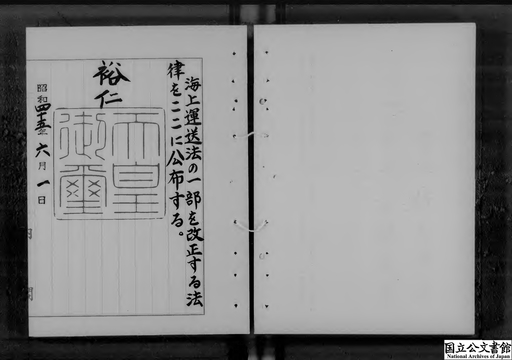 海上運送法の一部を改正する法
律をここに公布する。
裕仁
天皇
御璽
昭和四十五年六月一日
内閣
国立公文書館
National Archives of Japan